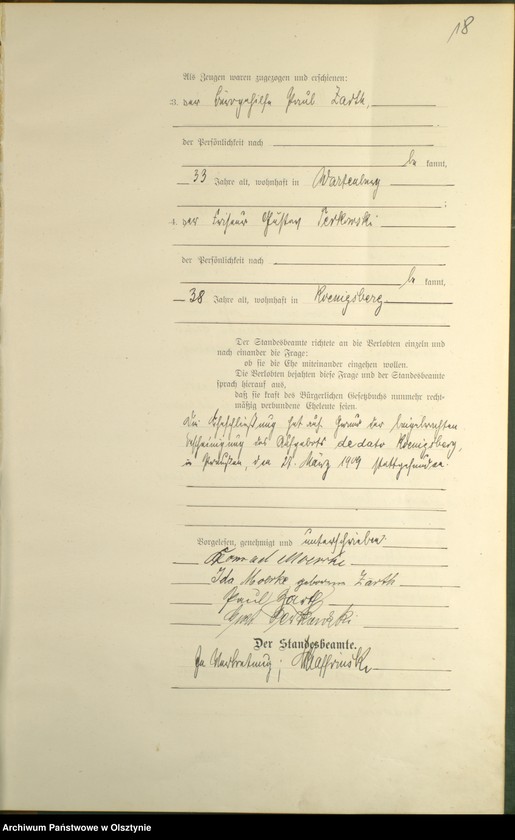 18
Als Zeugen waren zugezogen und erschienen:
3. der Bürogehilfe Paul Zarth,
der Persönlichkeit nach
be kannt,
33 Jahre alt, wohnhaft in Wartenburg
;
4. der Friseur Gustav Perkowski
der Persönlichkeit nach
be kannt,
38 Jahre alt, wohnhaft in Koenigsberg
Der Standesbeamte richtete an die Verlobten einzeln und
nach einander die Frage:
ob sie die Ehe miteinander eingehen wollen.
Die Verlobten bejahten diese Frage und der Standesbeamte
sprach hierauf aus,
daß sie kraft des Bürgerlichen Gesetzbuchs nunmehr recht-
mäßig verbundene Eheleute seien.
Die Eheschließung hat auf Grund der beigebrachten
Bescheinigung des Aufgebots de dato Koenigsberg,
in Preußen, den März 1909 stattgefunden.
Vorgelesen, genehmigt und unterschrieben
Konrad
Ida geborene Zarth
Paul Zarth
Der Standesbeamte.
In Vertretung;
Archiwum Państwowe w Olsztynie